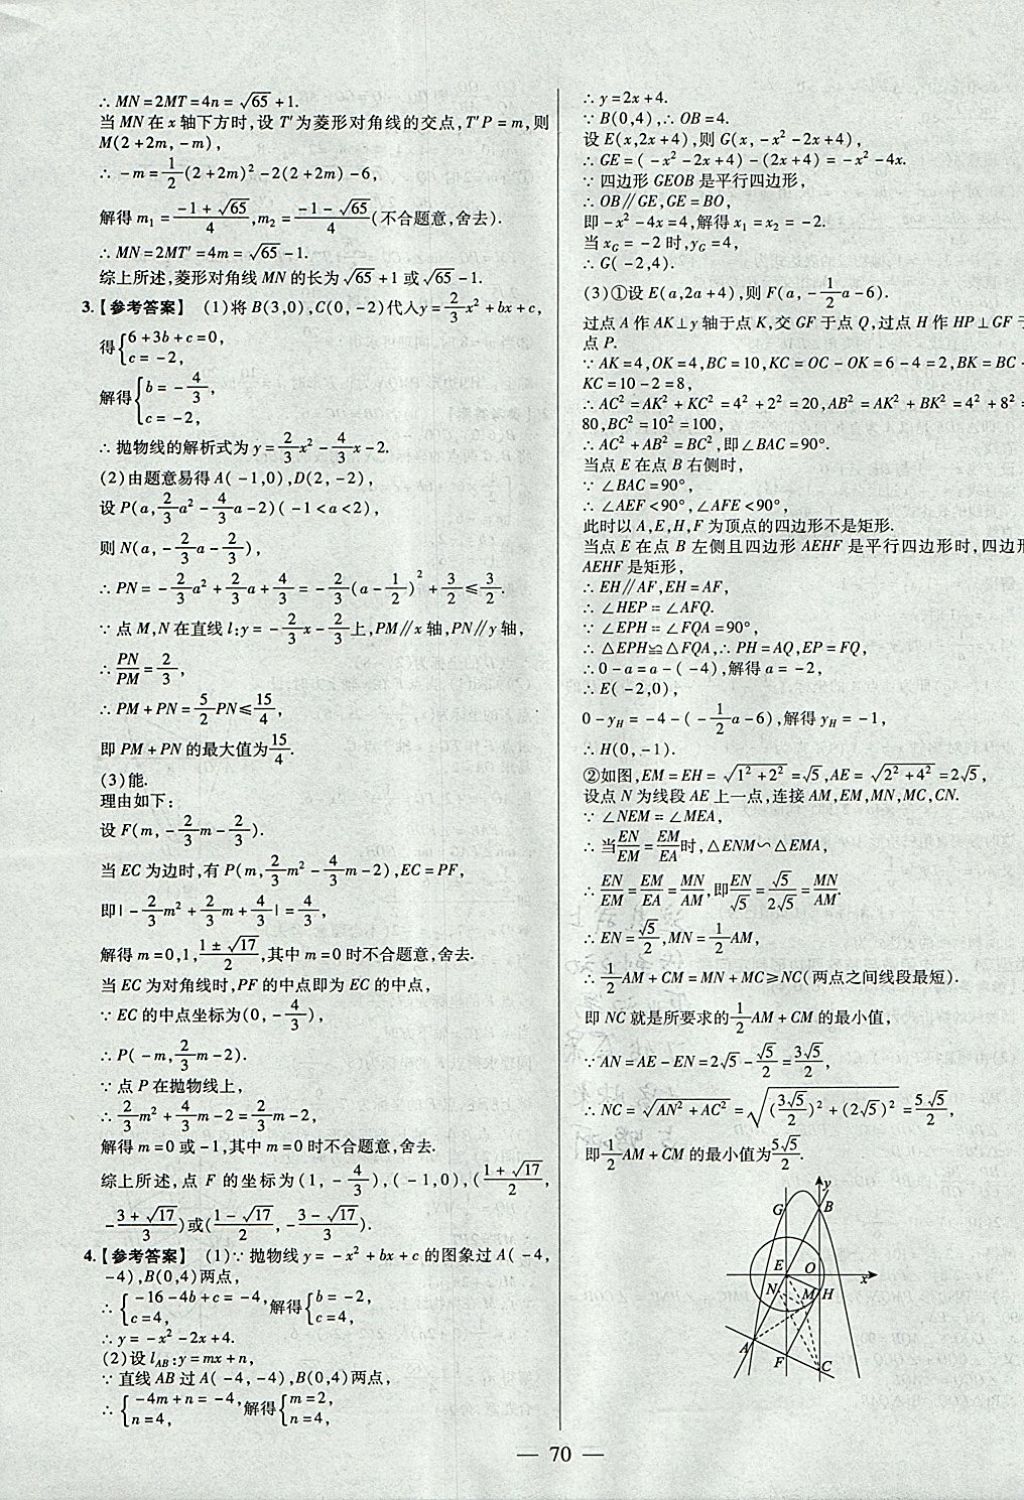 ∴ MN=2MT=4n=√65+1.
当 MN 在 x 轴下方时,设 T′为菱形对角线的交点,T′P=m,则
M(2+2m,-m),
∴ -m=1/2(2+2m)²-2(2+2m)-6,
解得 m₁=(-1+√65)/4,m₂=(-1-√65)/4(不合题意,舍去).
∴ MN=2MT′=4m=√65-1.
综上所述,菱形对角线 MN 的长为√65+1 或√65-1.
3.【参考答案】 (1)将 B(3,0),C(0,-2)代入y=2/3x²+bx+c,
得{6+3b+c=0,
c=-2,
解得{b=-4/3,
c=-2,
∴ 抛物线的解析式为 y=2/3x²-4/3x-2.
(2)由题意易得 A(-1,0),D(2,-2),
设 P(a,2/3a²-4/3a-2)(-1<a<2),
则 N(a,-2/3a-2/3),
∴ PN=-2/3a²+2/3a+4/3=-2/3(a-1/2)²+3/2≤3/2.
∵ 点 M,N 在直线 l:y=-2/3x-2/3上,PM∥x 轴,PN∥y 轴,
∴PN/PM=2/3,
∴ PM+PN=5/2PN≤15/4,
即 PM+PN 的最大值为15/4.
(3)能.
理由如下:
设 F(m,-2/3m-2/3).
当 EC 为边时,有 P(m,2/3m²-4/3m-2),EC=PF,
即|-2/3m²+2/3m+4/3|=4/3,
解得 m=0,1,(1±√17)/2,其中 m=0 时不合题意,舍去.
当 EC 为对角线时,PF 的中点即为 EC 的中点,
∵ EC 的中点坐标为(0,-4/3),
∴ P(-m,2/3m-2).
∵ 点 P 在抛物线上,
∴ 2/3m²+4/3m-2=2/3m-2,
解得 m=0 或-1,其中 m=0 时不合题意,舍去.
综上所述,点 F 的坐标为(1,-4/3),(-1,0),((1+√17)/2,
-(3+√17)/3)或((1-√17)/2,-(3-√17)/3).
4.【参考答案】 (1)∵ 抛物线 y=-x²+bx+c 的图象过 A(-4,
-4),B(0,4)两点,
∴{-16-4b+c=-4,
c=4,解得{b=-2,
c=4,
∴ y=-x²-2x+4.
(2)设 l_AB:y=mx+n,
∵ 直线 AB 过 A(-4,-4),B(0,4)两点,
∴{-4m+n=-4,
n=4,解得{m=2,
n=4,
∴ y=2x+4.
∵ B(0,4),∴ OB=4.
设 E(x,2x+4),则 G(x,-x²-2x+4),
∴ GE=(-x²-2x+4)-(2x+4)=-x²-4x.
∵ 四边形 GEOB 是平行四边形,
∴ OB∥GE,GE=BO,
即-x²-4x=4,解得 x₁=x₂=-2.
当 x_G=-2 时,y_G=4,
∴ G(-2,4).
(3)①设 E(a,2a+4),则 F(a,-1/2a-6).
过点 A 作 AK⊥y 轴于点 K,交 GF 于点 Q,过点 H 作 HP⊥GF 于
点 P.
∵ AK=4,OK=4,BC=10,KC=OC-OK=6-4=2,BK=BC-
KC=10-2=8,
∴ AC²=AK²+KC²=4²+2²=20,AB²=AK²+BK²=4²+8²=
80,BC²=10²=100,
∴ AC²+AB²=BC²,即∠BAC=90°.
当点 E 在点 B 右侧时,
∵ ∠BAC=90°,
∴ ∠AEF<90°,∠AFE<90°.
此时以 A,E,H,F 为顶点的四边形不是矩形.
当点 E 在点 B 左侧且四边形 AEHF 是平行四边形时,四边形
AEHF 是矩形,
∴ EH∥AF,EH=AF,
∴ ∠HEP=∠AFQ.
∵ ∠EPH=∠FQA=90°,
∴ △EPH≌△FQA,∴ PH=AQ,EP=FQ,
∴ 0-a=a-(-4),解得 a=-2,
∴ E(-2,0),
0-y_H=-4-(-1/2a-6),解得 y_H=-1,
∴ H(0,-1).
②如图,EM=EH=√(1²+2²)=√5,AE=√(2²+4²)=2√5,
设点 N 为线段 AE 上一点,连接 AM,EM,MN,MC,CN.
∵ ∠NEM=∠MEA,
∴ 当EN/EM=EM/EA时,△ENM∽△EMA,
∴ EN/EM=EM/EA=MN/AM,即EN/√5=√5/2√5=MN/AM.
∴ EN=√5/2,MN=1/2AM,
∴ 1/2AM+CM=MN+MC≥NC(两点之间线段最短).
即 NC 就是所要求的1/2AM+CM 的最小值,
∵ AN=AE-EN=2√5-√5/2=3√5/2,
∴ NC=√(AN²+AC²)=√((3√5/2)²+(2√5)²)=5√5/2,
即1/2AM+CM 的最小值为5√5/2.
y
G
B
E
O
x
N
M
H
A
F
C
— 70 —